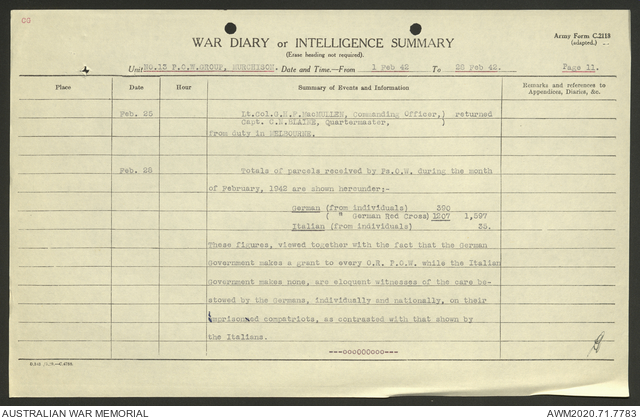 WAR DIARY or INTELLIGENCE SUMMARY
(Erase heading not required).
Army Form C.2118
(adapted.)
Unit No.13 P.O.W.GROUP, MURCHISON - Date and Time.—From 1 Feb 42 To 28 Feb 42. Page 11.
Place Date Hour Summary of Events and Information Remarks and references to
Appendices, Diaries, &c.
Feb. 25 Lt.Col.G.H.F.MacMULLEN, Commanding Officer,) returned
Capt. C.E.BLAINE, Quartermaster, )
from duty in MELBOURNE.
Feb. 28 Totals of parcels received by Ps.O.W. during the month
of February, 1942 are shown hereunder;-
German (from individuals) 390
( " German Red Cross) 1207 1,597
Italian (from individuals) 35.
These figures, viewed together with the fact that the German
Government makes a grant to every O.R. P.O.W. while the Italian
Government makes none, are eloquent witnesses of the care be-
stowed by the Germans, individually and nationally, on their
imprisoned compatriots, as contrasted with that shown by
the Italians.
---ooo0ooo---
AUSTRALIAN WAR MEMORIAL AWM2020.71.7783